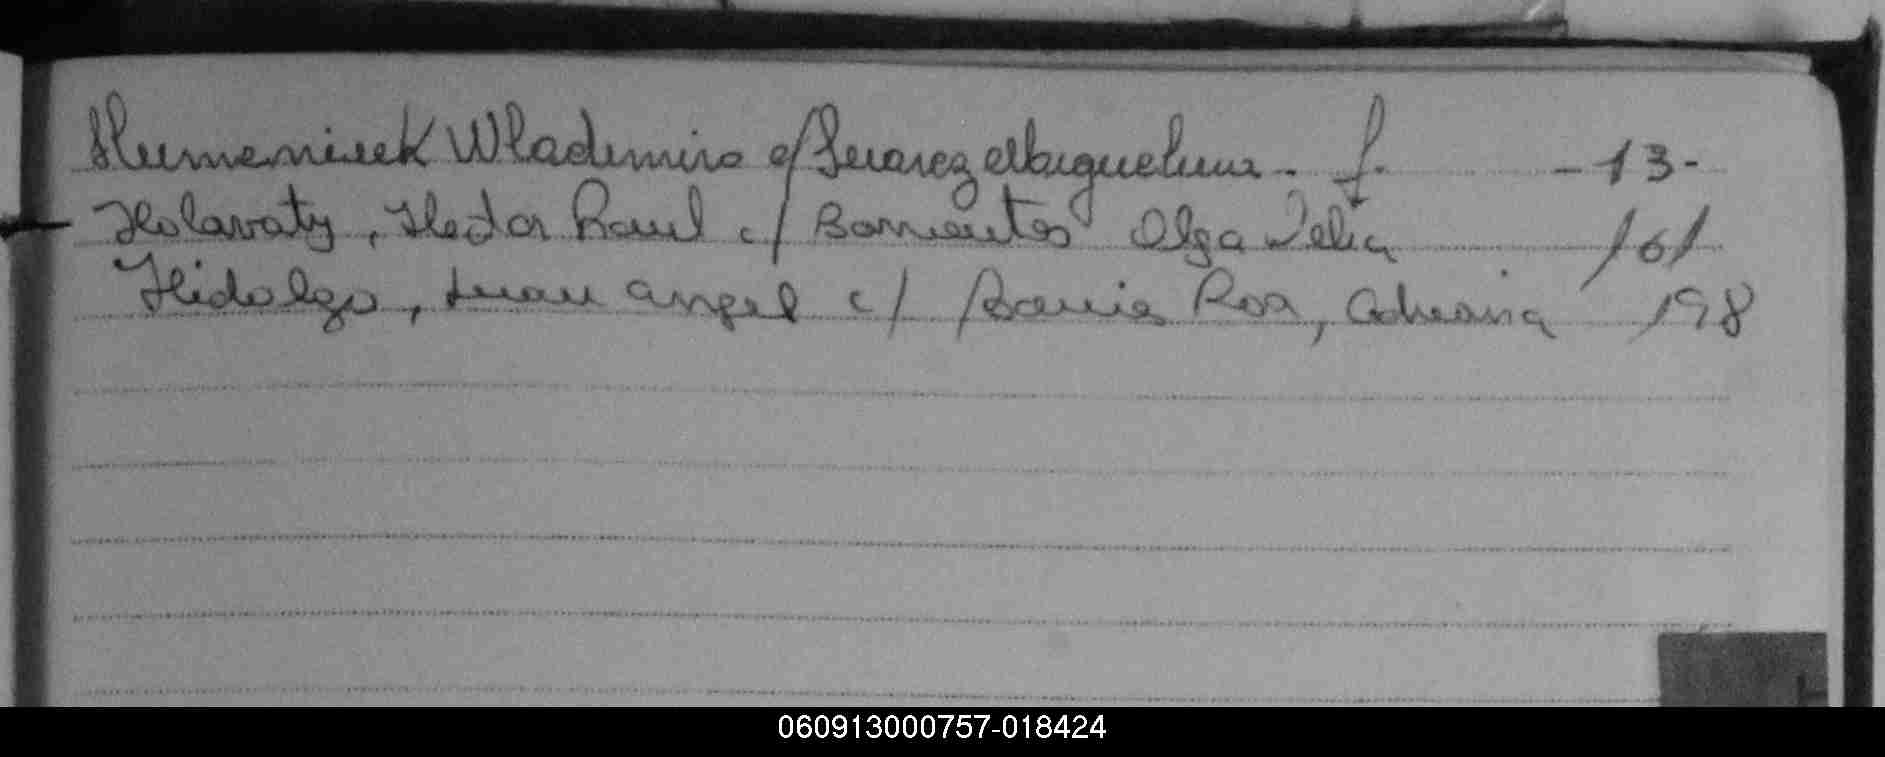 Humeniuk Wladimiro c/ Suarez Miguelina. f. - 13 -
Holavaty, Hector Raul c/ Barrientos Olga Delia 161
Hidalgo, Juan Angel c/ Roa, Adriana 198
060913000757-018424